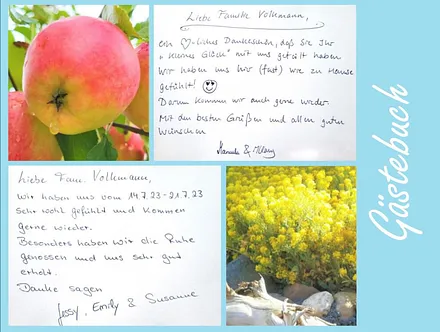 Liebe Familie Volkmann,
ein ♡-liches Dankeschön, daß Sie Ihr
"kleines Glück" mit uns geteilt haben
Wir haben uns hier (fast) wie zu Hause
gefühlt! ☺
Darum kommen wir auch gerne wieder.
Mit den besten Grüßen und allen guten
Wünschen
Hannelo &
Liebe Fam. Volkmann,
wir haben uns vom 14.7.23-21.7.23
sehr wohl gefühlt und kommen
gerne wieder.
Besonders haben wir die Ruhe
genossen und uns sehr gut
erholt.
Danke sagen
Jessy, Emily & Susanne
Gästebuch